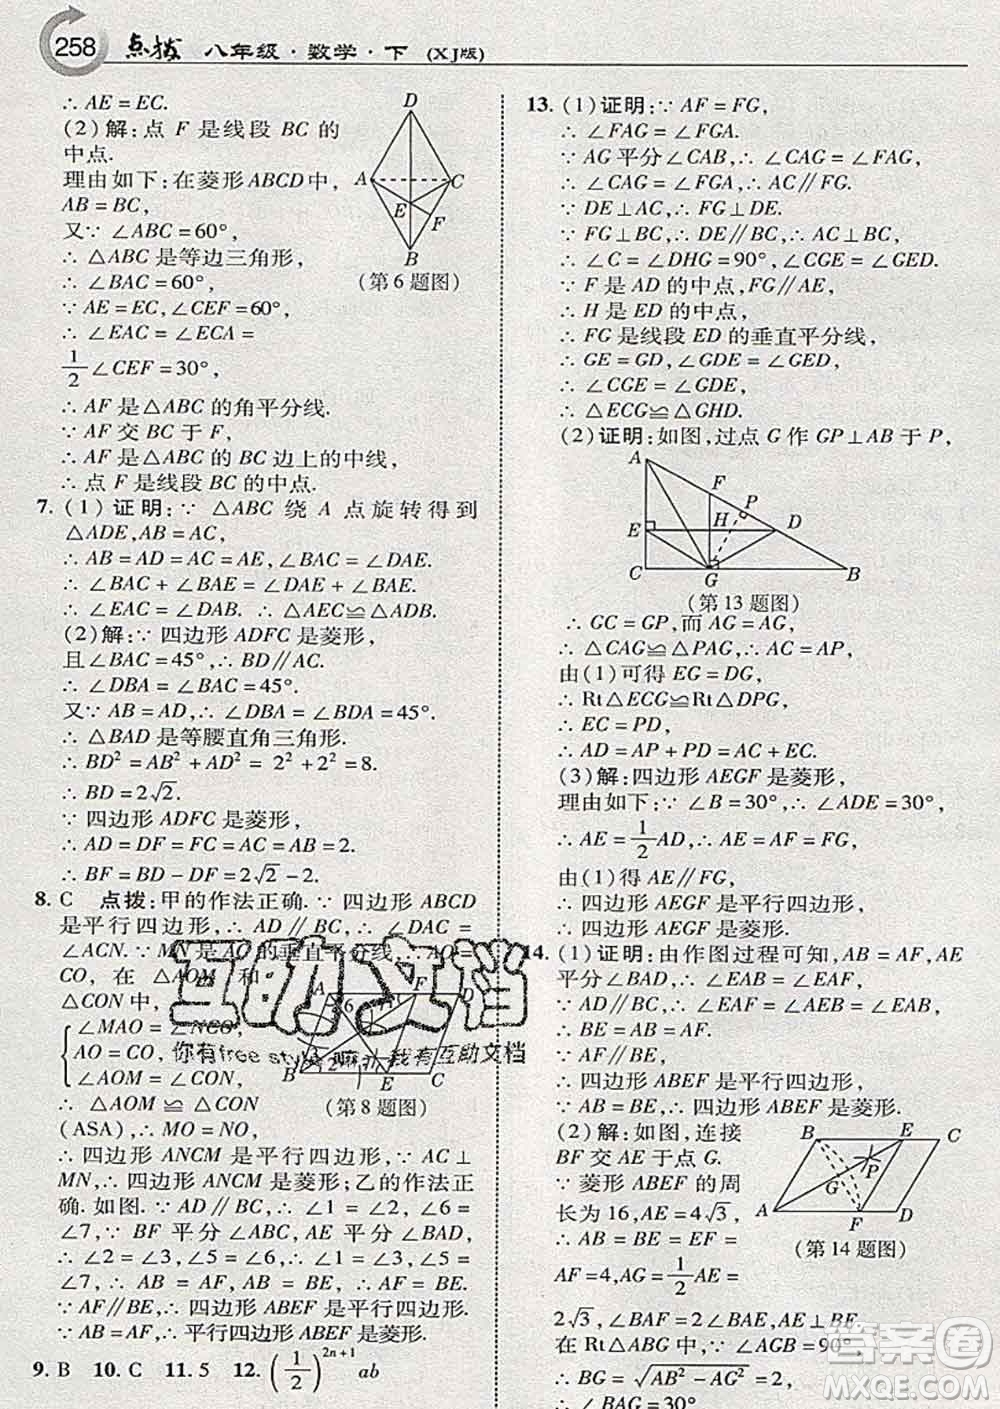 258 点拨 八年级·数学·下 (XJ版)
∴ AE = EC.
(2) 解:点 F 是线段 BC 的
中点.
理由如下:在菱形 ABCD 中,
AB = BC,
又∵ ∠ABC = 60°,
∴ △ABC 是等边三角形,
∴ ∠BAC = 60°,
∵ AE = EC, ∠CEF = 60°,
∴ ∠EAC = ∠ECA =
1/2 ∠CEF = 30°,
∴ AF 是△ABC 的角平分线.
∵ AF 交 BC 于 F,
∴ AF 是△ABC 的 BC 边上的中线,
∴ 点 F 是线段 BC 的中点.
D
A
C
E
F
B
(第 6 题图)
7. (1) 证明:∵ △ABC 绕 A 点旋转得到
△ADE, AB = AC,
∴ AB = AD = AC = AE, ∠BAC = ∠DAE.
∴ ∠BAC + ∠BAE = ∠DAE + ∠BAE.
∴ ∠EAC = ∠DAB. ∴ △AEC≌△ADB.
(2)解:∵ 四边形 ADFC 是菱形,
且∠BAC = 45°,∴ BD∥AC.
∴ ∠DBA = ∠BAC = 45°.
又∵ AB = AD,∴ ∠DBA = ∠BDA = 45°.
∴ △BAD 是等腰直角三角形.
∴ BD² = AB² + AD² = 2² + 2² = 8.
∴ BD = 2√2.
∵ 四边形 ADFC 是菱形,
∴ AD = DF = FC = AC = AB = 2.
∴ BF = BD − DF = 2√2 − 2.
8. C 点拨:甲的作法正确.∵ 四边形 ABCD
是平行四边形,∴ AD∥BC,∴ ∠DAC =
∠ACN. ∵ MN 是 AC 的垂直平分线,∴ AO =
CO, 在 △AOM 和
△CON 中,
∠MAO = ∠NCO,
AO = CO,
∠AOM = ∠CON,
∴ △AOM ≌ △CON
(ASA),∴ MO = NO,
A
F
D
6
B
3
2
1
E
C
(第 8 题图)
∴ 四边形 ANCM 是平行四边形,∵ AC⊥
MN,∴ 四边形 ANCM 是菱形;乙的作法正
确.如图.∵ AD∥BC,∴ ∠1 = ∠2, ∠6 =
∠7,∵ BF 平分∠ABC, AE 平分∠BAD,
∴ ∠2 = ∠3, ∠5 = ∠6,∴ ∠1 = ∠3,
∠5 = ∠7,∴ AB = AF, AB = BE,∴ AF = BE.
∵ AF∥BE,∴ 四边形 ABEF 是平行四边形,
∵ AB = AF,∴ 平行四边形 ABEF 是菱形.
9. B 10. C 11. 5 12. (1/2)²ⁿ⁺¹ ab
13. (1)证明:∵ AF = FG,
∴ ∠FAG = ∠FGA.
∵ AG 平分∠CAB,∴ ∠CAG = ∠FAG,
∴ ∠CAG = ∠FGA,∴ AC∥FG.
∵ DE⊥AC,∴ FG⊥DE.
∵ FG⊥BC,∴ DE∥BC,∴ AC⊥BC,
∴ ∠C = ∠DHG = 90°, ∠CGE = ∠GED.
∵ F 是 AD 的中点,FG∥AE,
∴ H 是 ED 的中点,
∴ FG 是线段 ED 的垂直平分线,
∴ GE = GD, ∠GDE = ∠GED,
∴ ∠CGE = ∠GDE,
∴ △ECG≌△GHD.
(2)证明:如图,过点 G 作 GP⊥AB 于 P,
A
F
P
E
H
D
C
G
B
(第 13 题图)
∴ GC = GP,而 AG = AG,
∴ △CAG≌△PAG,∴ AC = AP,
由(1)可得 EG = DG,
∴ Rt△ECG≌Rt△DPG,
∴ EC = PD,
∴ AD = AP + PD = AC + EC.
(3)解:四边形 AEGF 是菱形,
理由如下:∵ ∠B = 30°,∴ ∠ADE = 30°,
∴ AE = 1/2 AD,∴ AE = AF = FG,
由(1)得 AE∥FG,
∴ 四边形 AEGF 是平行四边形,
∴ 四边形 AEGF 是菱形.
14. (1)证明:由作图过程可知,AB = AF, AE
平分∠BAD,∴ ∠BAE = ∠EAF.
∵ AD∥BC,∴ ∠EAF = ∠AEB = ∠EAB,
∴ BE = AB = AF.
∴ 四边形 ABEF 是平行四边形.
∵ AB = BE,∴ 四边形 ABEF 是菱形.
(2)解:如图,连接
BF 交 AE 于点 G.
∵ 菱形 ABEF 的周
长为 16, AE = 4√3,
∴ AB = BE = EF =
AF = 4, AG = 1/2 AE =
B
E
C
P
G
A
F
D
(第 14 题图)
2√3, ∠BAF = 2∠BAE, AE⊥BF.
在 Rt△ABG 中, ∠AGB = 90°,
∴ BG = √(AB² − AG²) = 2,
∴ ∠BAG = 30°
互助文档
你有free style嘛 我有互助文档
答案圈